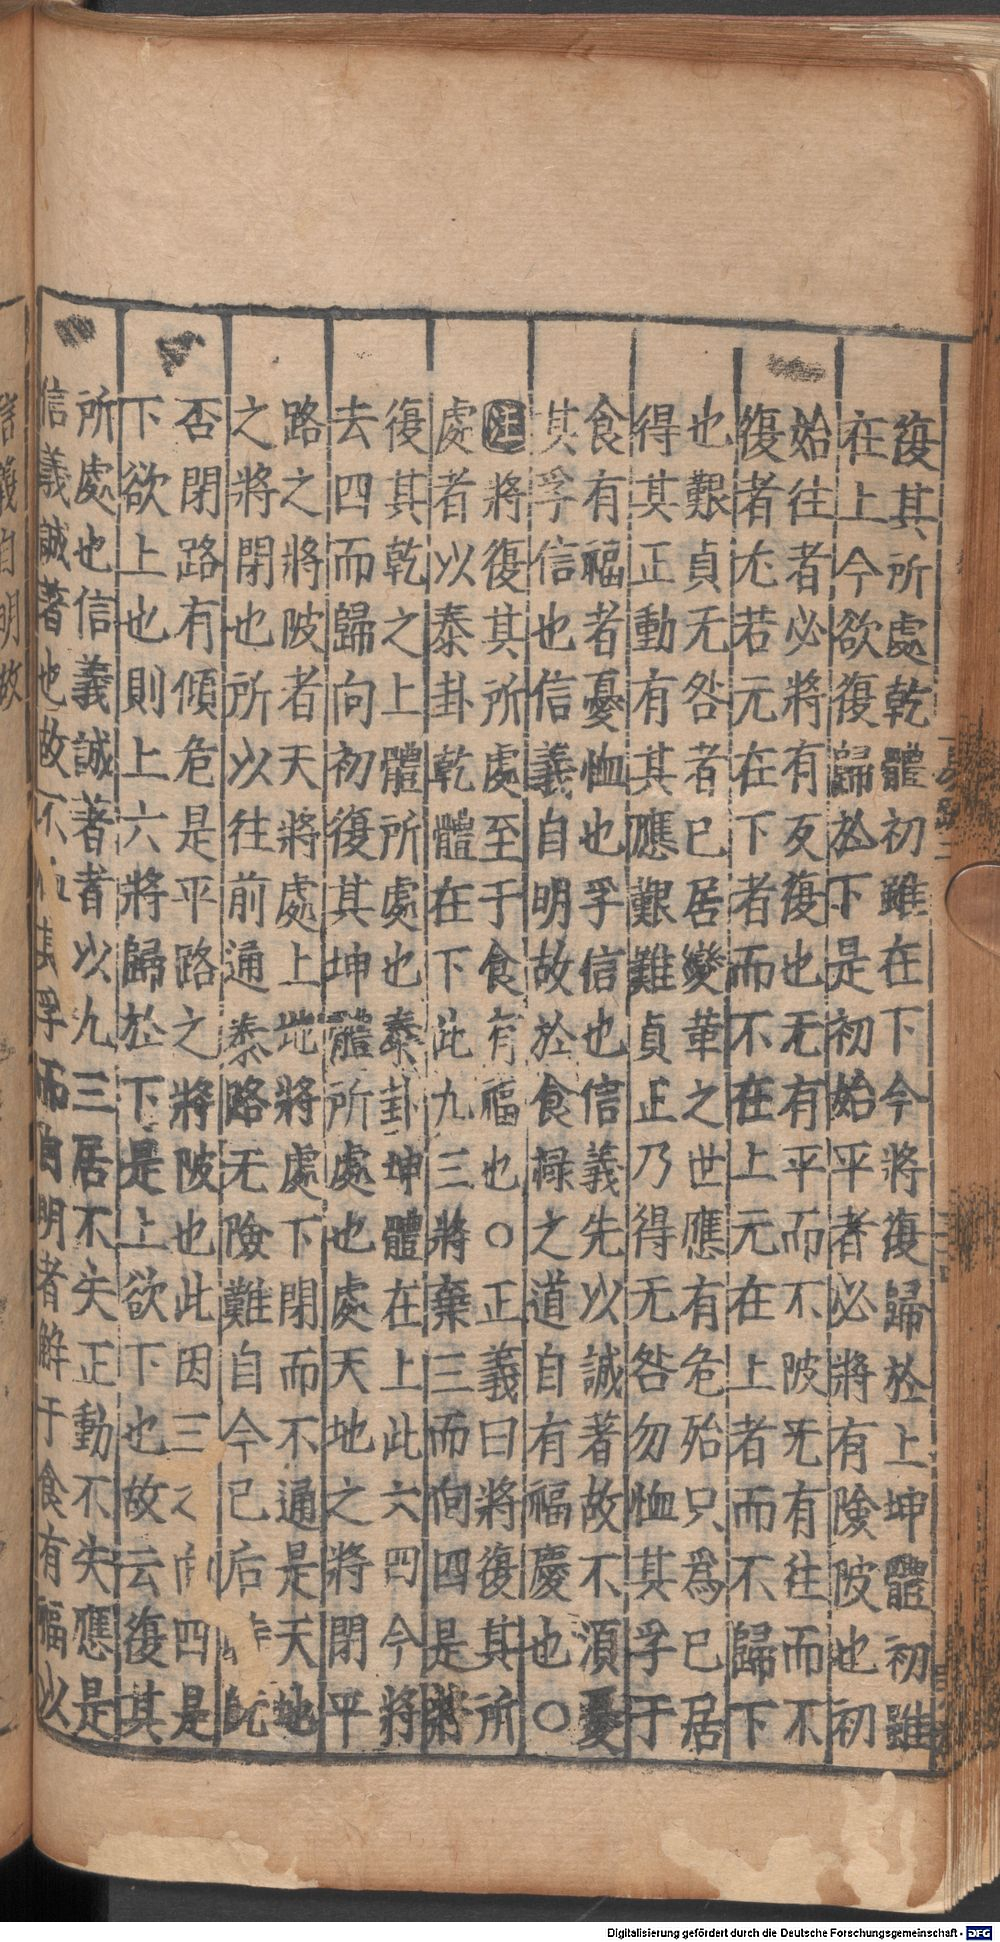 復其所處乾體初雖在下今將復歸於上坤體初雖
在上今欲復歸於下是初始平者必將有險陂也初
始往者必將有反復也无有平而不陂旡有往而不
復者尢若元在下者而不在上元在上者而不歸下
也艱貞无咎者已居變革之世應有危殆只爲已居
得其正動有其應艱難貞正乃得无咎勿恤其孚于
食有福者憂恤也孚信也信義先以誠著故不湏憂
其孚信也信義自明故於食禄之道自有福慶也○
注將復其所處至于食有福也○正義曰將復其所
處者以泰卦乾體在下此九三將棄三而向四是將
復其乾之上體所處也泰卦坤體在上此六四今將
去四而歸向初復其坤體所處也處天地之將閉平
路之將陂者天將處上地將處下閉而不通是天地
之將閉也所以往前通泰路无險難自今已后
否閉路有傾危是平路之將陂也此因三之向四是
下欲上也則上六將歸於下是上欲下也故云復其
所處也信義誠著者以九三居不失正動不失應是
信義誠著也故不恤其孚而自明者解于食有福以
易疏二
信義自明故
Digitalisierung gefördert durch die Deutsche Forschungsgemeinschaft - DFG